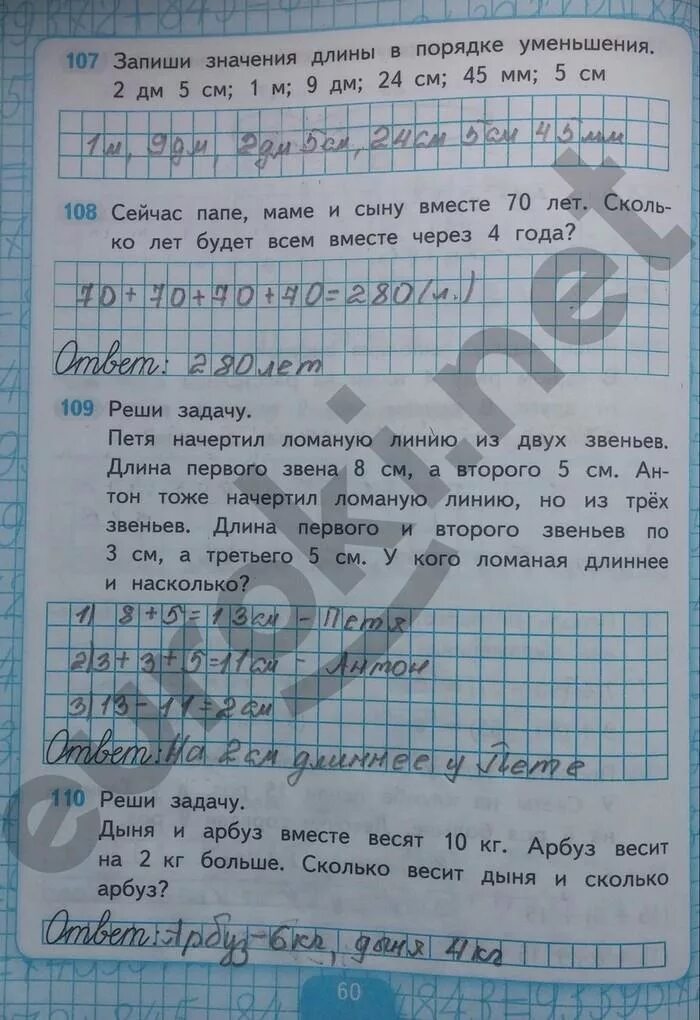 107 Запиши значения длины в порядке уменьшения.
2 дм 5 см; 1 м; 9 дм; 24 см; 45 мм; 5 см
1м, 9дм, 2дм 5см, 24см 5см 45мм
108 Сейчас папе, маме и сыну вместе 70 лет. Сколь-
ко лет будет всем вместе через 4 года?
70+70+70+70=280(л.)
Ответ: 280лет
109 Реши задачу.
Петя начертил ломаную линию из двух звеньев.
Длина первого звена 8 см, а второго 5 см. Ан-
тон тоже начертил ломаную линию, но из трёх
звеньев. Длина первого и второго звеньев по
3 см, а третьего 5 см. У кого ломаная длиннее
и насколько?
1) 8+5=13см - Петя
2)3+3+5=11см - Антон
3)13-11=2см
Ответ: На 2см длиннее у Пете
110 Реши задачу.
Дыня и арбуз вместе весят 10 кг. Арбуз весит
на 2 кг больше. Сколько весит дыня и сколько
арбуз?
Ответ: Арбуз-6кг, дыня 4кг
60
euroki.net